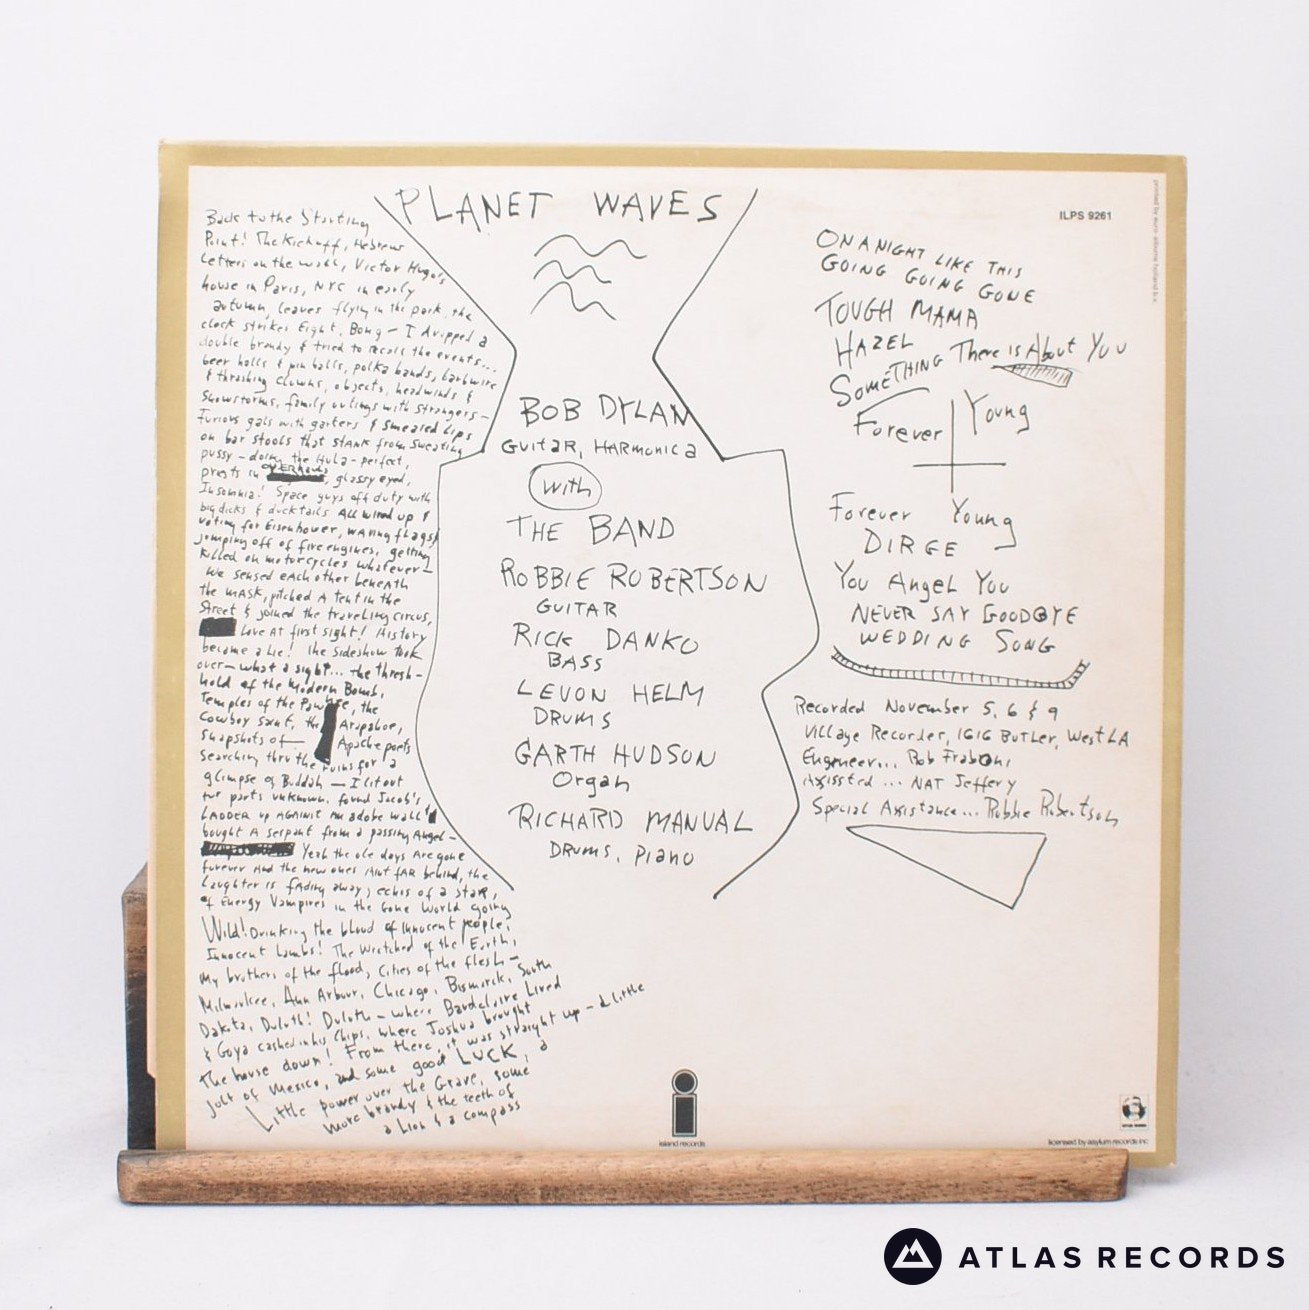 PLANET WAVES
Back to the Starting
Point! The Kickoff, Hebrew
Letters on the wall, Victor Hugo's
house in Paris, NYC in early
autumn, leaves flying in the park, the
clock strikes Eight, Bong – I dropped a
double brandy & tried to recall the events...
beer halls & pin balls, polka bands, barbwire
& thrashing clowns, objects, headwinds &
Snowstorms, family outings with strangers –
Furious gals with garters & smeared Lips
on bar stools that stank from sweating
pussy – doing the Hula – perfect,
priests in OVERHAULS, glassy eyed,
Insomnia! Space guys off duty with
big dicks & ducktails All wired up &
voting for Eisenhower, waving flags &
jumping off of fire engines, getting
killed on motorcycles whatever –
We sensed each other beneath
the mask, pitched a tent in the
Street & joined the traveling circus,
Love At first sight! History
became a Lie! the sideshow took
over – what a sight... the thresh-
hold of the Modern Bomb,
Temples of the Pawnee, the
Cowboy saint, the Arapahoe,
Snapshots of – Apache poets
searching thru the ruins for a
glimpse of Buddah – I lit out
for parts unknown, found Jacob's
LADDER up AGAINST an adobe wall &
bought A serpent from a passing Angel –
Yeah the ole days Are gone
forever And the new ones Aint fAR behind, the
Laughter is fAding away, echos of a staR,
of Energy Vampires in the Gone World going
Wild! Drinking the blood of Innocent people,
Innocent Lambs! The Wretched of the Earth,
My brothers of the flood, Cities of the flesh –
Milwaukee, Ann Arbour, Chicago, Bismarck, South
Dakota, Duluth! Duluth – where Baudelaire Lived
& Goya cashed in his Chips, where Joshua brought
the house down! From there, it was straight up – a little
jolt of Mexico, and some good LUCK, a
Little power over the Grave, some
more brandy & the teeth of
a Lion & a compass
BOB DYLAN
GUITAR, HARMONICA
With
THE BAND
ROBBIE ROBERTSON
GUITAR
RICK DANKO
BASS
LEVON HELM
DRUMS
GARTH HUDSON
Organ
RICHARD MANUAL
DRUMS, Piano
ILPS 9261
ON A NIGHT LIKE THIS
GOING GOING GONE
TOUGH MAMA
HAZEL
SOMETHING There is About You
Forever Young
Forever Young
DIRGE
You Angel You
NEVER SAY GOODBYE
WEDDING SONG
Recorded November 5, 6 & 9
Village Recorder, 1616 BUTLER, West LA
Engineer... Rob Fraboni
Assissted ... NAT Jeffery
Special Assistance... Robbie Robertson
island records
licensed by asylum records inc
ATLAS RECORDS